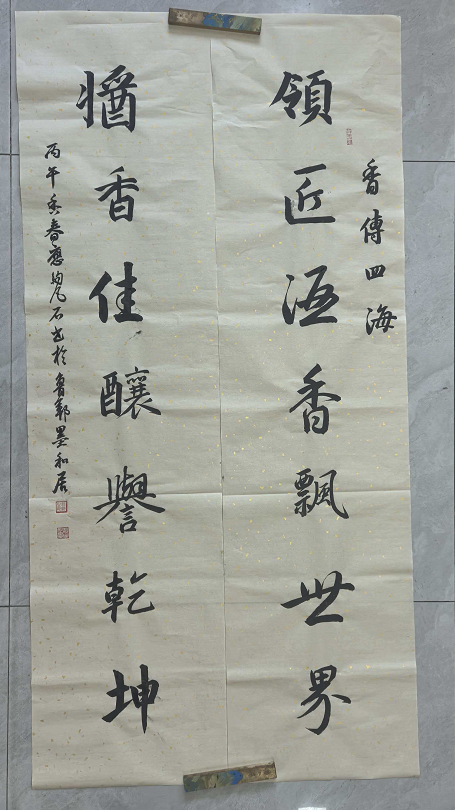 香傳四海
領匠酒香飄世界
醬香佳釀譽乾坤
丙午春石書於魯墨和居